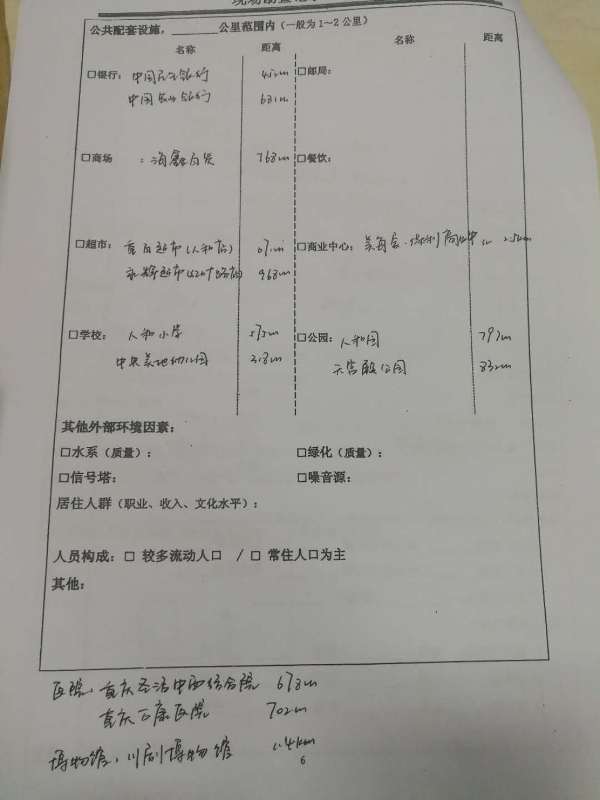 公共配套设施，______公里范围内（一般为1~2公里）
名称 距离 名称 距离
□银行： 中国民生银行 452m □邮局：
中国农业银行 681m
□商场 ： 海鑫百货 768m □餐饮：
□超市： 重百超市（人和店） □商业中心： 2.5km
永辉超市 968m
□学校： 人和小学 575m □公园： 人和园 797m
中央美地幼儿园 318m 天宫殿公园 832m
其他外部环境因素：
□水系（质量）： □绿化（质量）：
□信号塔： □噪音源：
居住人群（职业、收入、文化水平）：
人员构成：□ 较多流动人口 / □ 常住人口为主
其他：
医院： 重庆圣浩中西结合院 678m
重庆正康医院 702m
博物馆： 川剧博物馆 1.4km
6